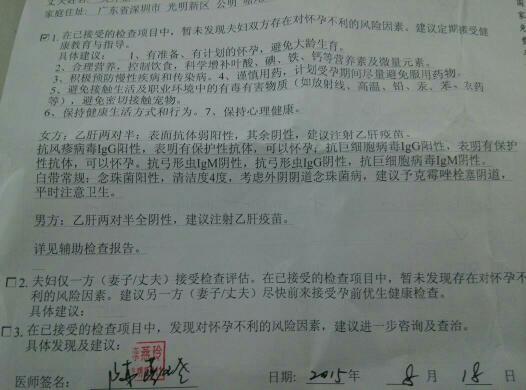 家庭住址: 广东省深圳市 光明新区 公明
☑1. 在已接受的检查项目中，暂未发现夫妇双方存在对怀孕不利的风险因素。建议定期接受健
康教育与指导。
具体建议： 1、有准备、有计划的怀孕，避免大龄生育。
2、合理营养，控制饮食，科学增补叶酸、碘、铁、钙等营养素及微量元素。
3、积极预防慢性疾病和传染病。4、谨慎用药，计划受孕期间尽量避免服用药物。
5、避免接触生活及职业环境中的有毒有害物质（如放射线、高温、铅、汞、苯、农药
等），避免密切接触宠物。
6、保持健康生活方式和行为。7、保持心理健康。
女方：乙肝两对半：表面抗体弱阳性，其余阴性，建议注射乙肝疫苗。
抗风疹病毒IgG阳性，表明有保护性抗体，可以怀孕；抗巨细胞病毒IgG阳性，表明有保护
性抗体，可以怀孕。抗弓形虫IgM阴性，抗弓形虫IgG阴性，抗巨细胞病毒IgM阴性。
白带常规：念珠菌阳性，清洁度4度，考虑外阴阴道念珠菌病，建议予克霉唑栓塞阴道，
平时注意卫生。
男方：乙肝两对半全阴性，建议注射乙肝疫苗。
详见辅助检查报告。
☐2. 夫妇仅一方（妻子/丈夫）接受检查评估。在已接受的检查项目中，暂未发现存在对怀孕不
利的风险因素。建议另一方（妻子/丈夫）尽快前来接受孕前优生健康检查。
具体建议：
☐3. 在已接受的检查项目中，发现对怀孕不利的风险因素，建议进一步咨询及查治。
具体发现及建议：
医师签名： 日期: 2015年 8月 18日